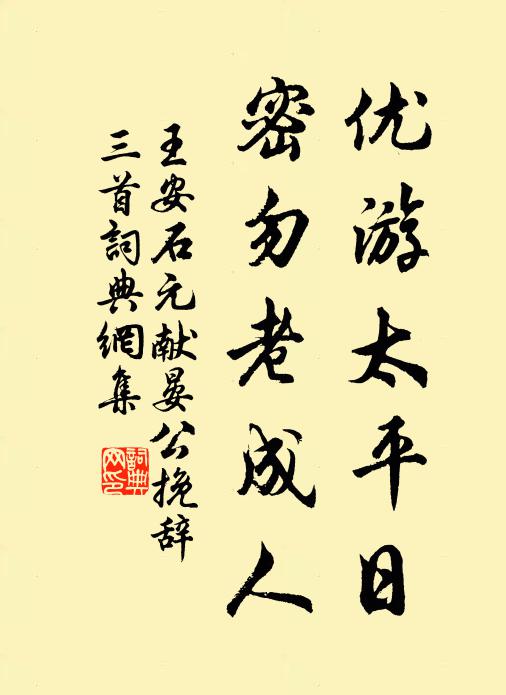 优游太平日
密勿老成人
王安石元献晏公挽辞
三首詞典網集
詞典
网印